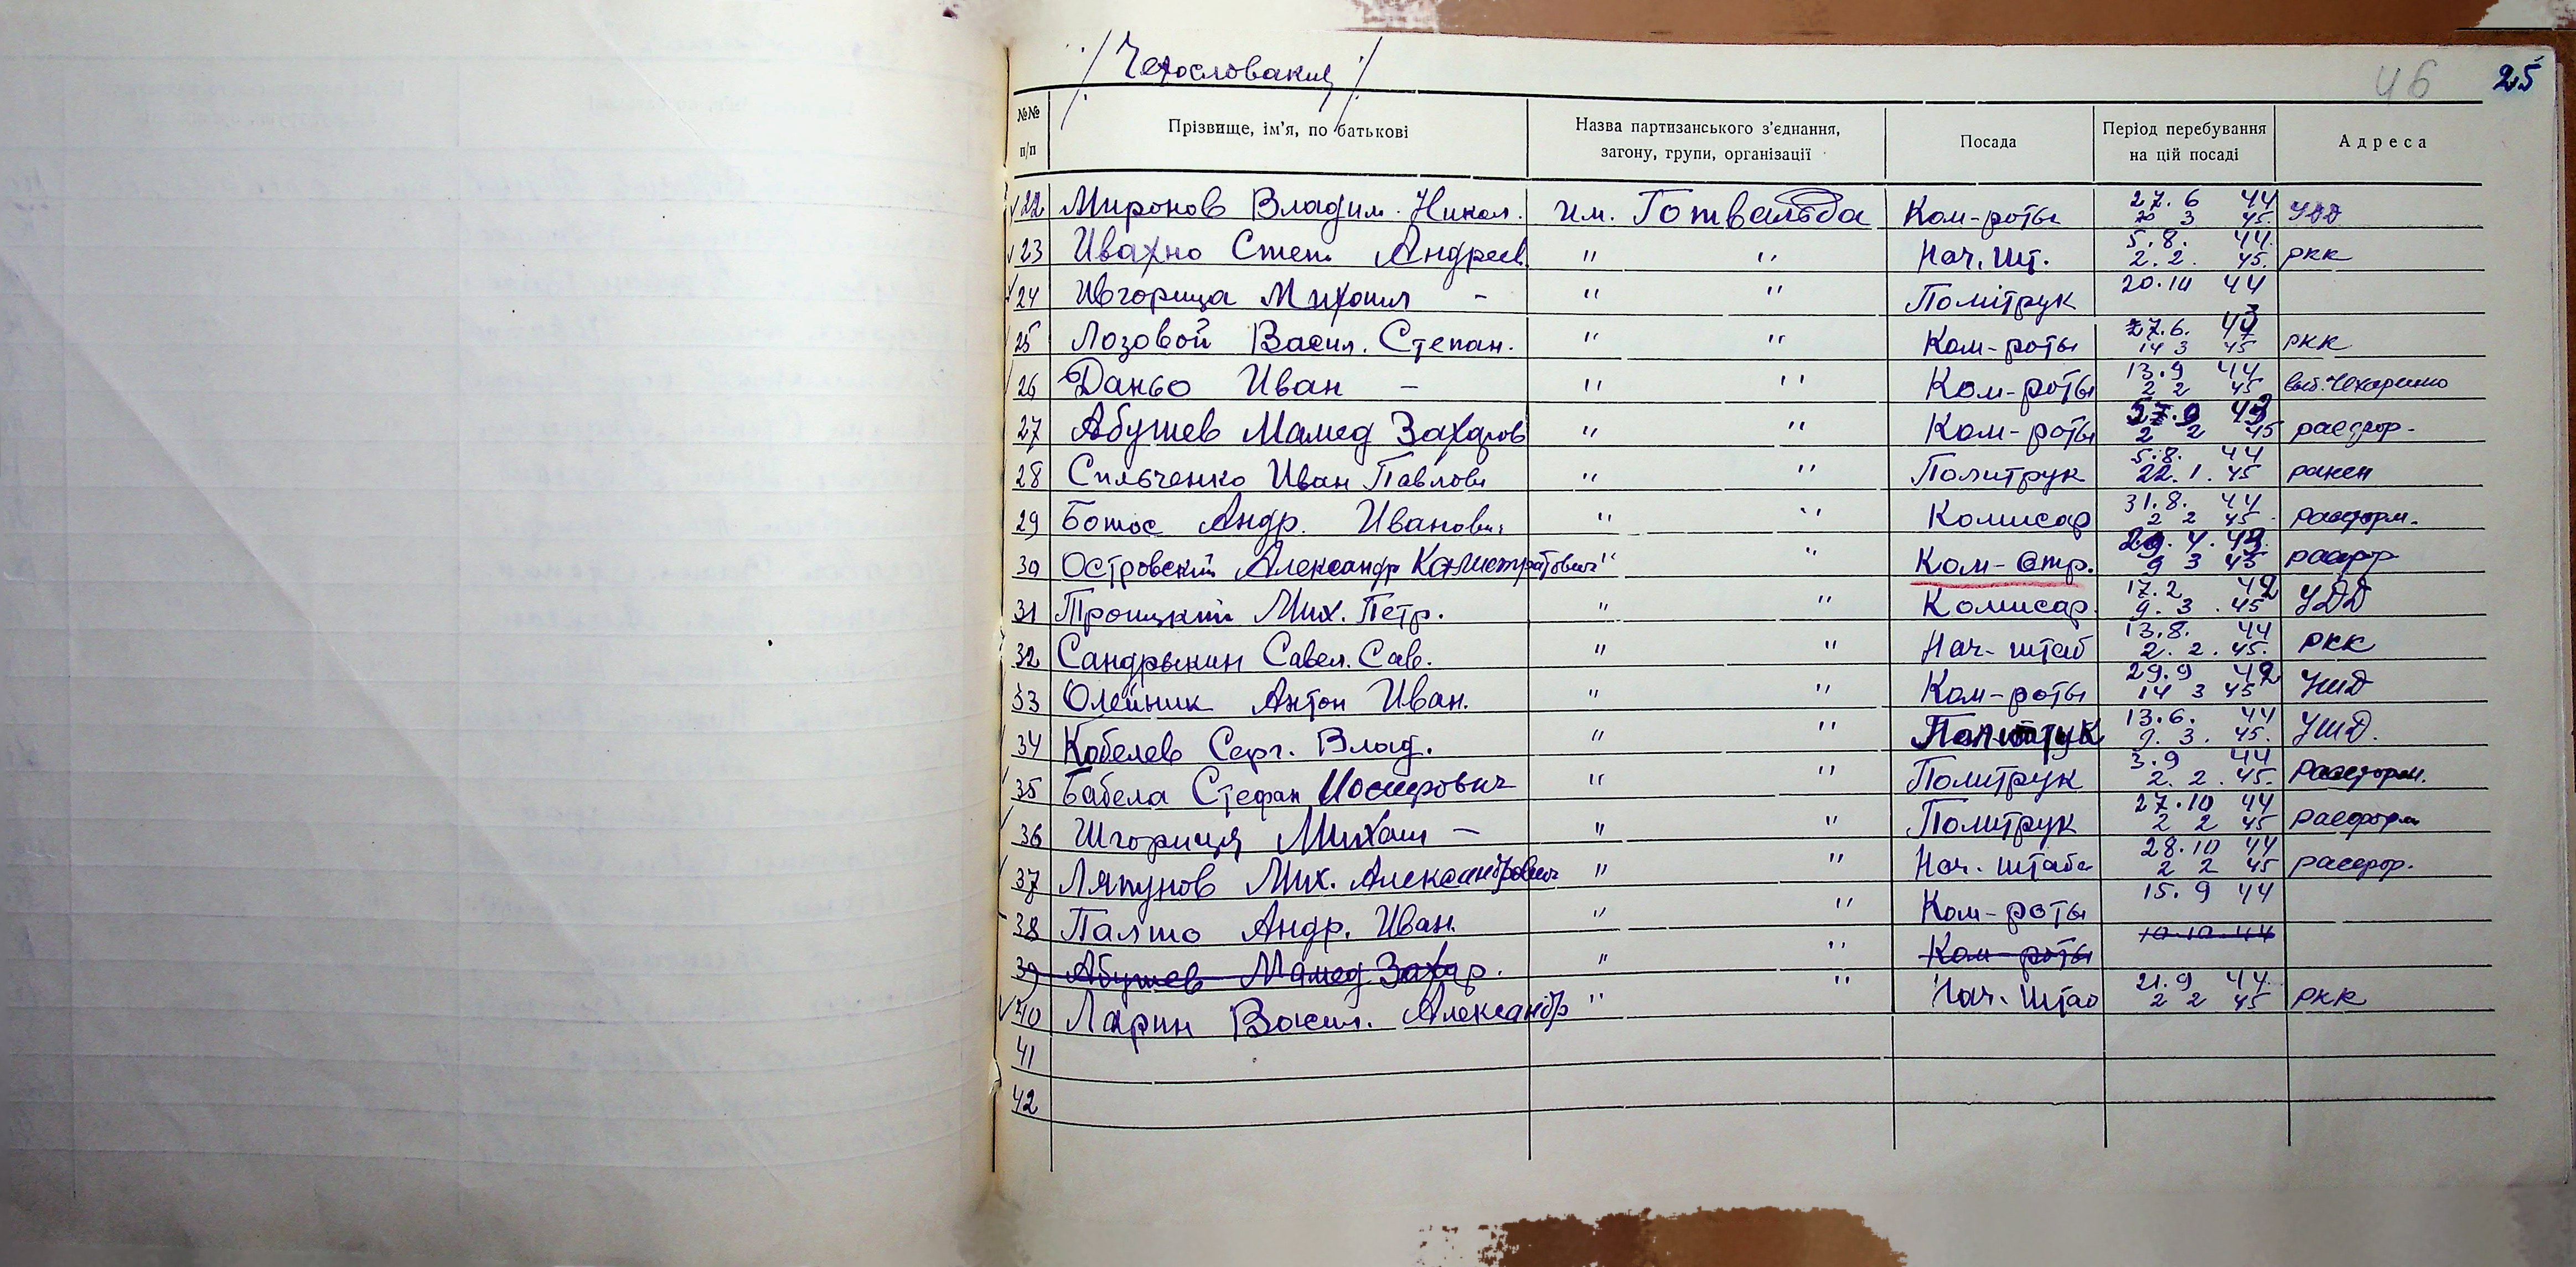 / Чехословакия /
46 25
№№ п/п Прізвище, ім'я, по батькові Назва партизанського з'єднання, загону, групи, організації Посада Період перебування на цій посаді Адреса
22 Миронов Владим. Никол. им. Готвальда Ком-роты 27.6 44 3 45. УДД
23 Ивахно Степ. Андреев. " " Нач. шт. 5.8. 44. 2.2. 45. РКК
24 Михаил - " " Політрук 20.10 44
25 Лозовой Васил. Степан. " " Ком-роты 27.6. 43 14 3 45 РКК
26 Даньо Иван - " " Ком-роты 13.9 44 2 2 45
27 Абушев Мамед Захаров " " Ком-роты 2 2 45 расфор.
28 Сильченко Иван Павлов " " Политрук 5.8. 44 22.1.45 ранен
29 Ботос Андр. Иванович " " Комисар 31.8. 44 2 2 45 расформ.
30 Островский Александр Калистратович " " Ком-отр. 9 3 45 расфор
31 Троицкий Мих. Петр. " " Комисар 17.2 42 9.3.45 УДД
32 Сандрыкин Савел. Сав. " " Нач-штаб 13.8. 44 2.2.45. РКК
33 Олейник Антон Иван. " " Ком-роты 29.9 42 14 3 45 УШД
34 Кобелев Серг. Влад. " " Политрук 13.6. 44 9.3.45. УШД.
35 Бабела Стефан Иосифович " " Политрук 3.9 44 2.2.45. Расформ.
36 Шгориця Михаил - " " Политрук 27.10 44 2 2 45 расформ
37 Ляпунов Мих. Александрович " " Нач. штаба 28.10 44 2 2 45 расфор.
38 Палшо Андр. Иван. " " Ком-роты 15.9 44
39 Абушев Мамед Захар. " " Ком-роты 10.10.44
40 Ларин Васил. Александр " " Нач. штаб 21.9 44. 2 2 45 РКК
41
42